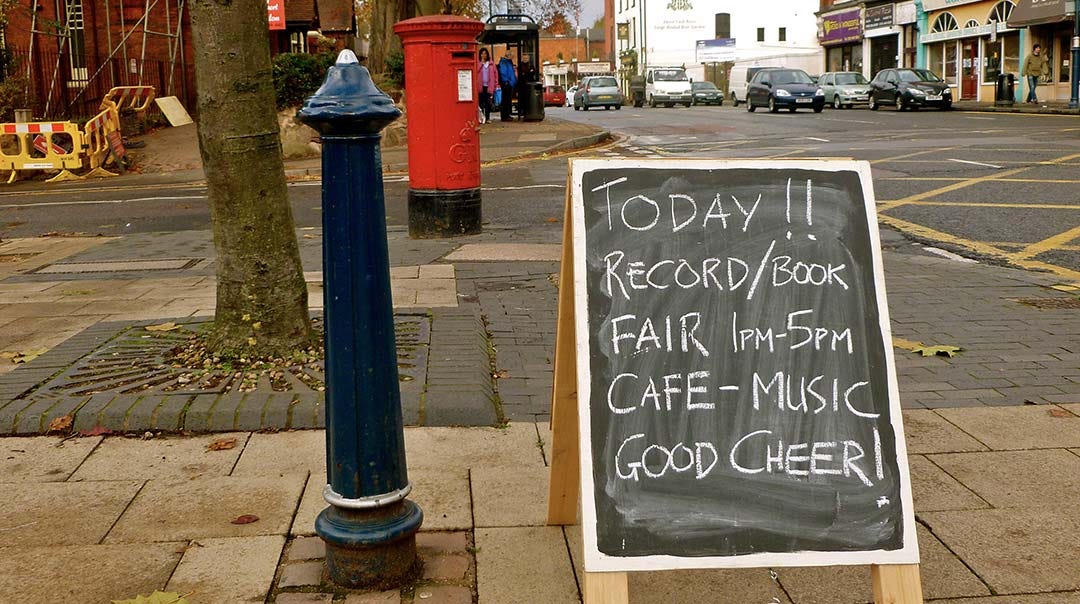 TODAY!!
RECORD/BOOK
FAIR 1PM-5PM
CAFE - MUSIC
GOOD CHEER!